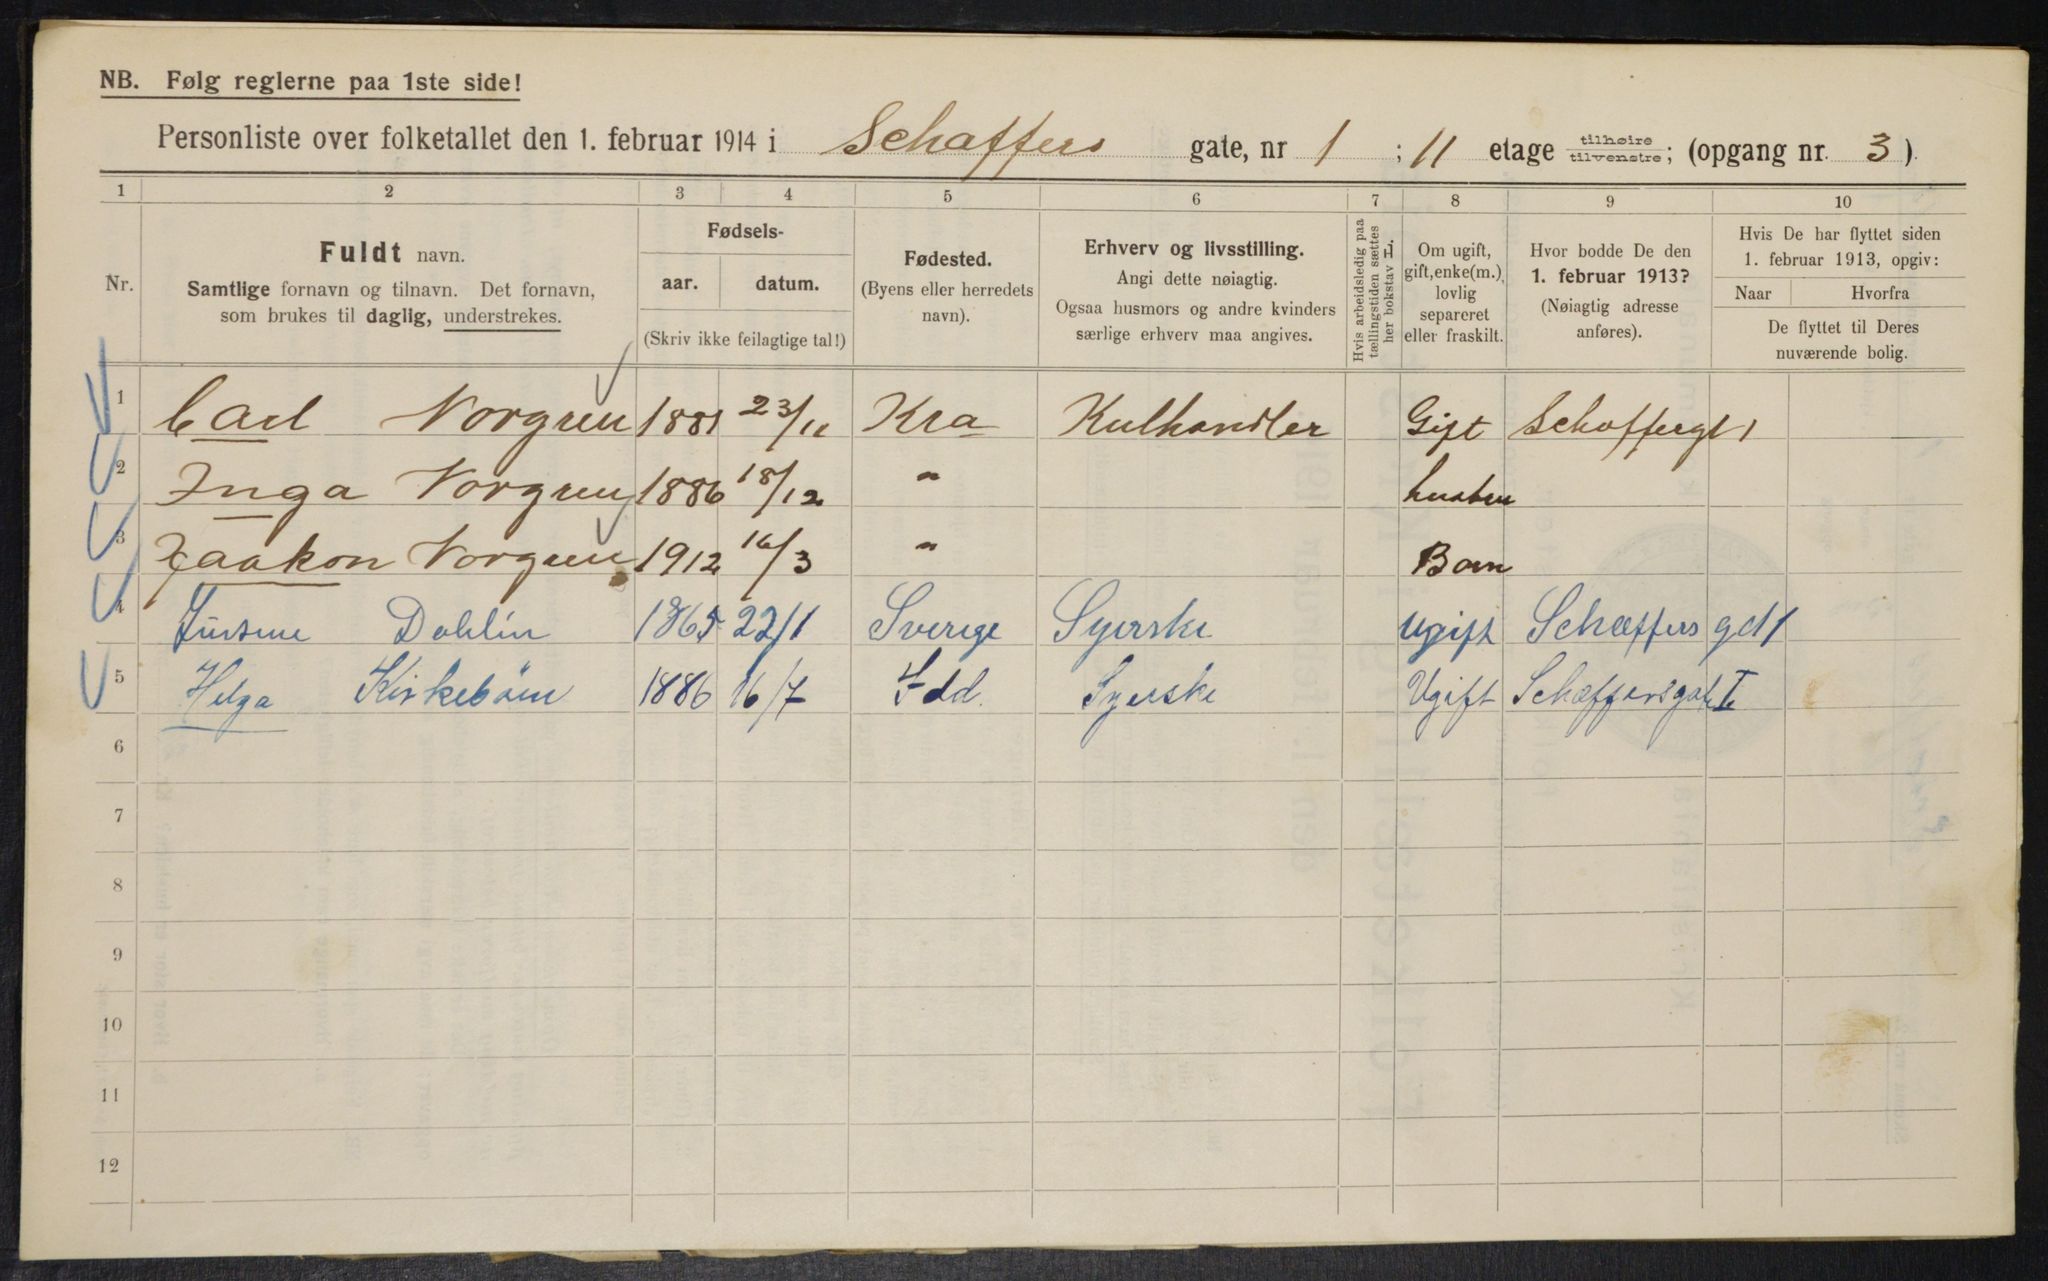 NB. Følg reglerne paa 1ste side!
Personliste over folketallet den 1. februar 1914 i Schaffers gate, nr 1 ; 11 etage tilhøire tilvenstre; (opgang nr. 3)
1 2 3 4 5 6 7 8 9 10
Nr.
Fuldt navn.
Samtlige fornavn og tilnavn. Det fornavn,
som brukes til daglig, understrekes.
Fødsels-
aar. datum.
(Skriv ikke feilagtige tal!)
Fødested.
(Byens eller herredets
navn).
Erhverv og livsstilling.
Angi dette nøiagtig.
Ogsaa husmors og andre kvinders
særlige erhverv maa angives.
Hvis arbeidsledig paa
tællingstiden sættes
her bokstav L.
Om ugift,
gift, enke(m.),
lovlig
separeret
eller fraskilt.
Hvor bodde De den
1. februar 1913?
(Nøiagtig adresse
anføres).
Hvis De har flyttet siden
1. februar 1913, opgiv:
Naar Hvorfra
De flyttet til Deres
nuværende bolig.
1 Carl Norgren 1881 23/11 Kra Kulhandler Gift Schaffergt 1
2 Inga Norgren 1886 18/12 "
3 Haakon Norgren 1912 16/3 " Barn
4 Dahlin 1865 22/1 Sverige Syerske ugift Schæffers gd 1
5 Helga Kirkebøen 1886 16/7 Idd. Syerske Ugift Schæffersgate I
6
7
8
9
10
11
12